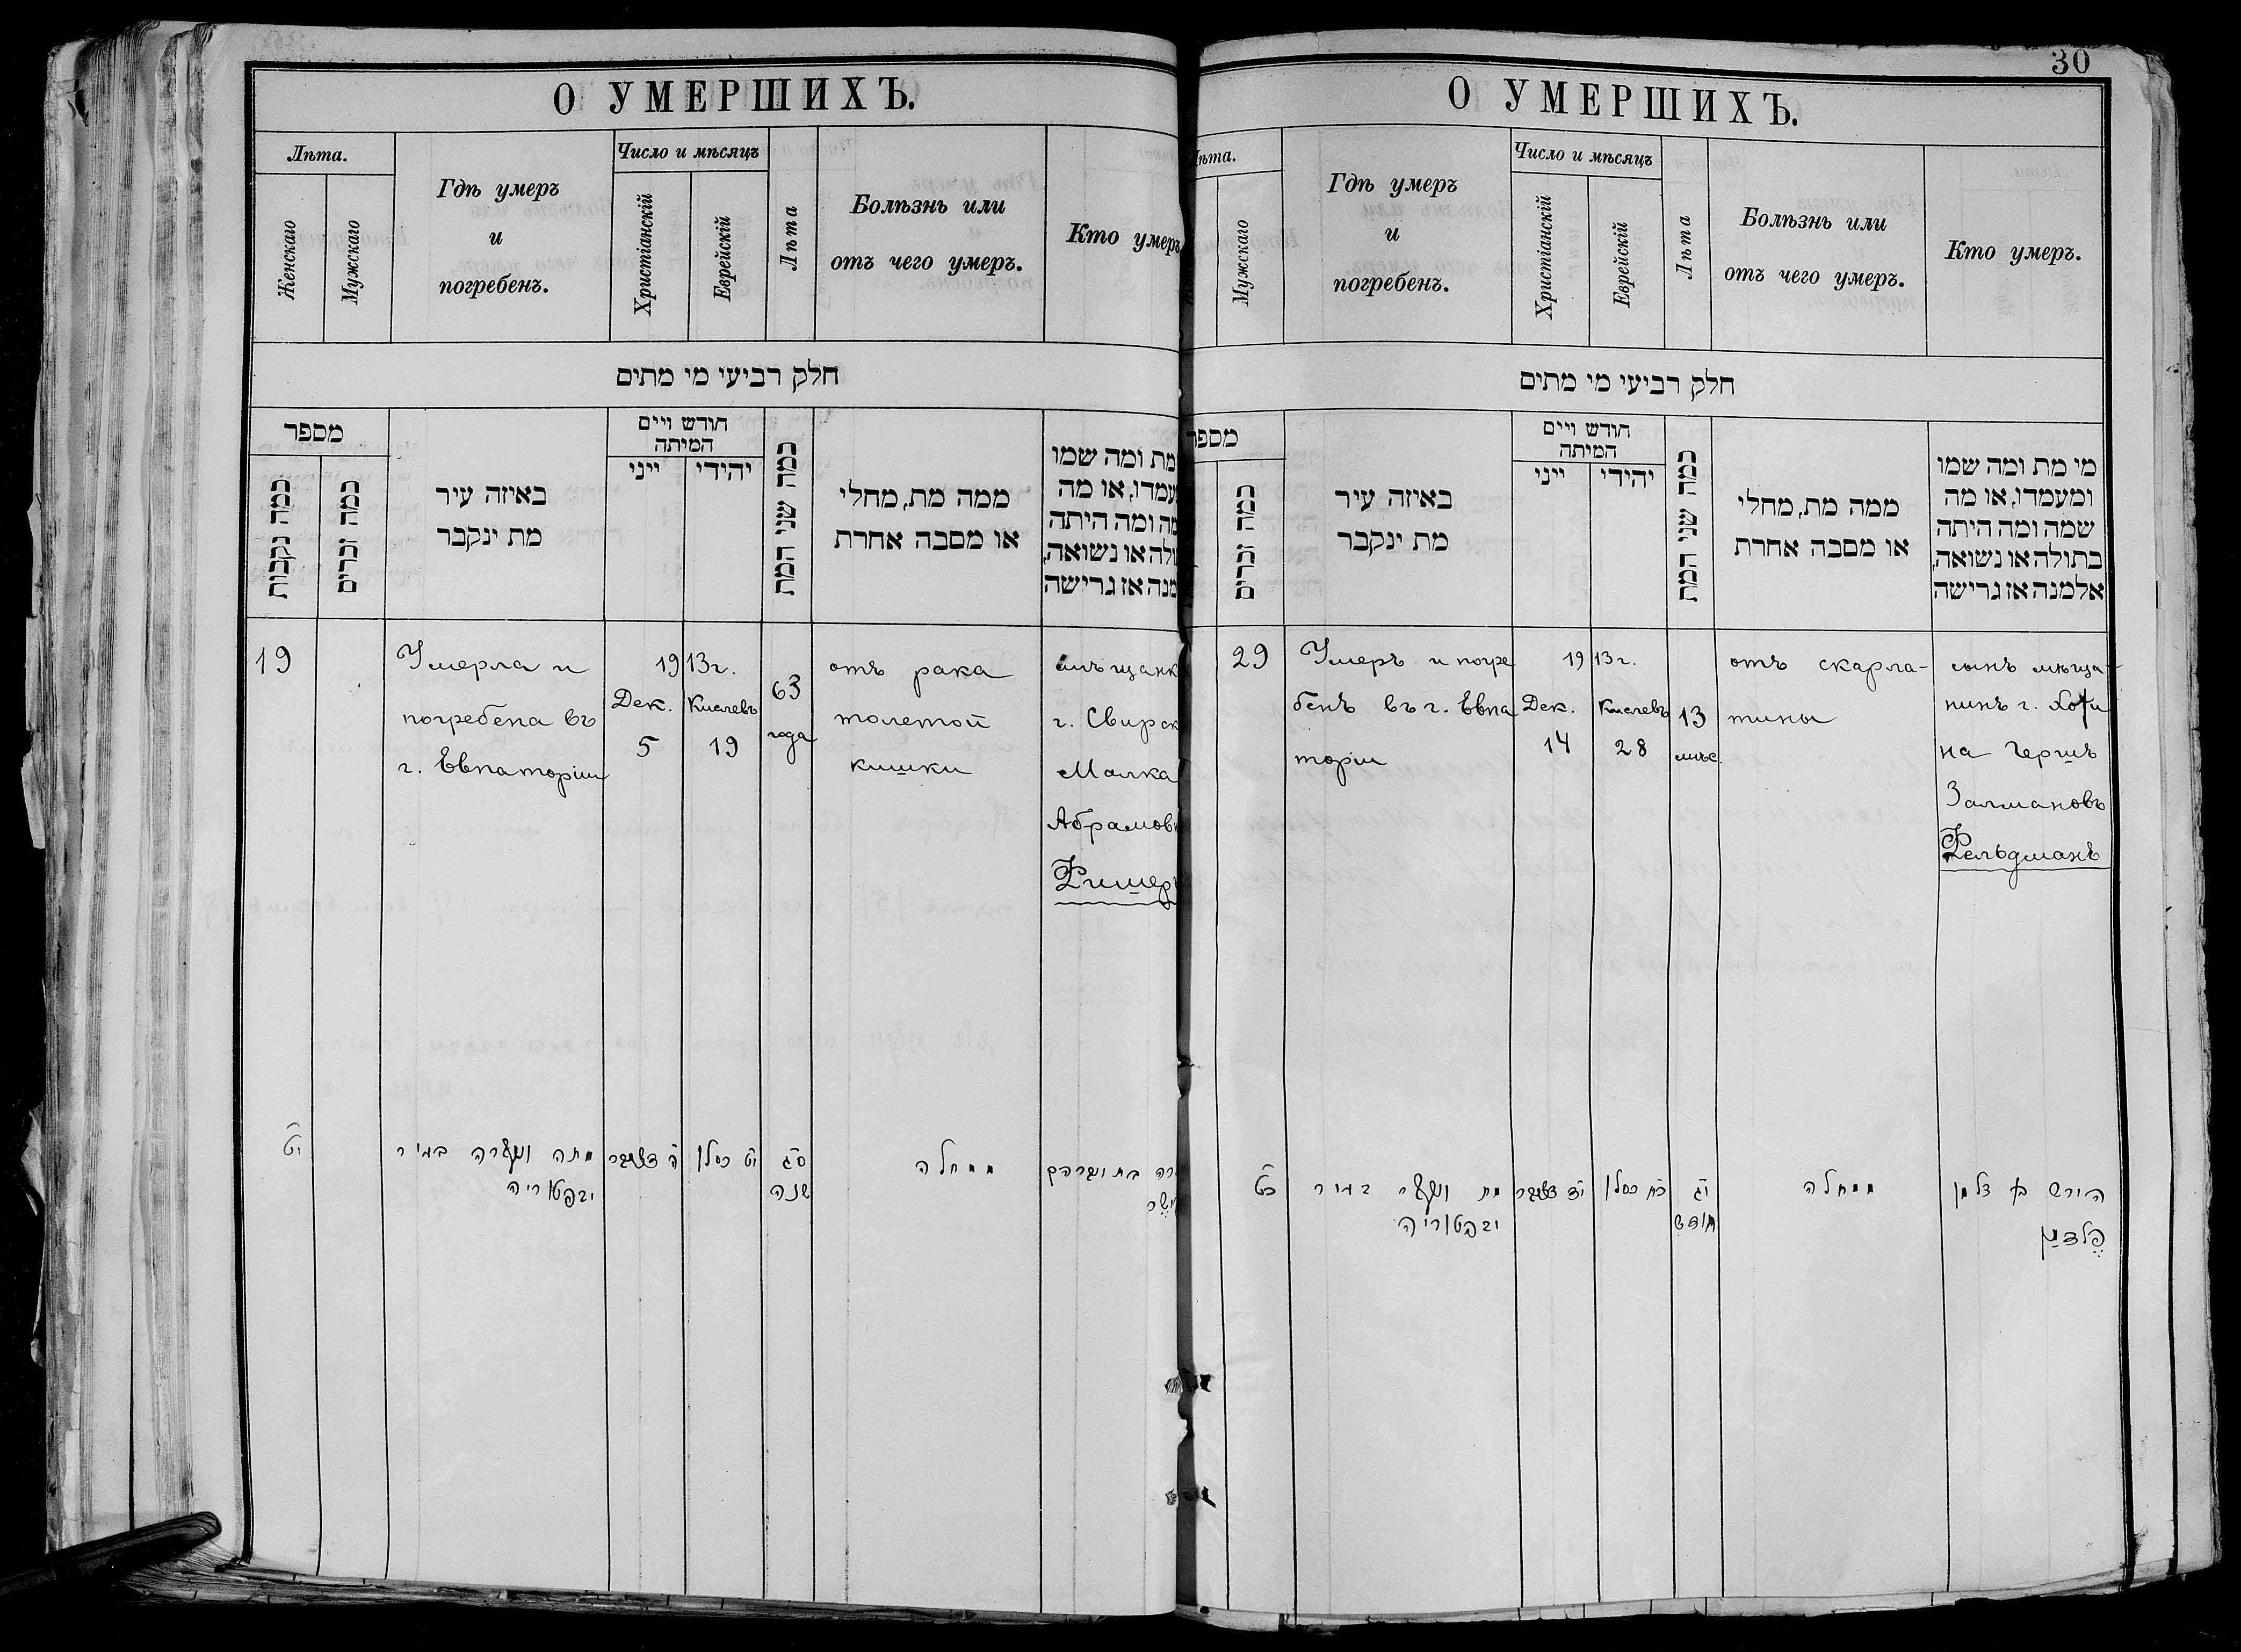 О УМЕРШИХЪ.
Лѣта.
Женскаго
Мужскаго
Гдѣ умеръ
и
погребенъ.
Число и мѣсяцъ
Христіанскій
Еврейскій
Лѣта
Болѣзнь или
отъ чего умеръ.
Кто умеръ
חלק רביעי מי מתים
מספר
כמה נקבות
כמה זכרים
באיזה עיר
מת ינקבר
חודש ויים
המיתה
ייני
יהידי
כמה שני המת
ממה מת, מחלי
או מסבה אחרת
מת ומה שמו
עמדו, או מה
מה ומה היתה
ולה או נשואה,
מנה אז גרישה
19
Умерла и
погребена въ
г. Евпаторіи
1913г.
Дек.
5
Кислевъ
19
63
года
отъ рака
толстой
кишки
мѣщанк
г. Свирск
Малка
Абрамовн
Фишеръ
י״ט
מתה ונקברה בעיר
יבפטוריה
ה׳ דצעמבר
י״ט כסלו
ס״ג
שנה
ממחלה
רה בת אברהם
ישר
30
О УМЕРШИХЪ.
ѣта.
Мужскаго
Гдѣ умеръ
и
погребенъ.
Число и мѣсяцъ
Христіанскій
Еврейскій
Лѣта
Болѣзнь или
отъ чего умеръ.
Кто умеръ.
חלק רביעי מי מתים
מספר
כמה זכרים
באיזה עיר
מת ינקבר
חודש ויים
המיתה
ייני
יהידי
כמה שני המת
ממה מת, מחלי
או מסבה אחרת
מי מת ומה שמו
ומעמדו, או מה
שמה ומה היתה
בתולה או נשואה,
אלמנה אז גרישה
29
Умеръ и погре
бенъ въ г. Евпа
торіи
1913г.
Дек.
14
Кислевъ
28
13
мѣс.
отъ скарла-
тины
сынъ мѣща-
нинъ г. Хоти
на Гершъ
Залмановъ
Фельдманъ
כ״ט
מת ונקבר בעיר
יבפטוריה
י״ד דצעמבר
כ״ח כסלו
י״ג
חודש
ממחלה
הירש בן זלמן
פלדמן